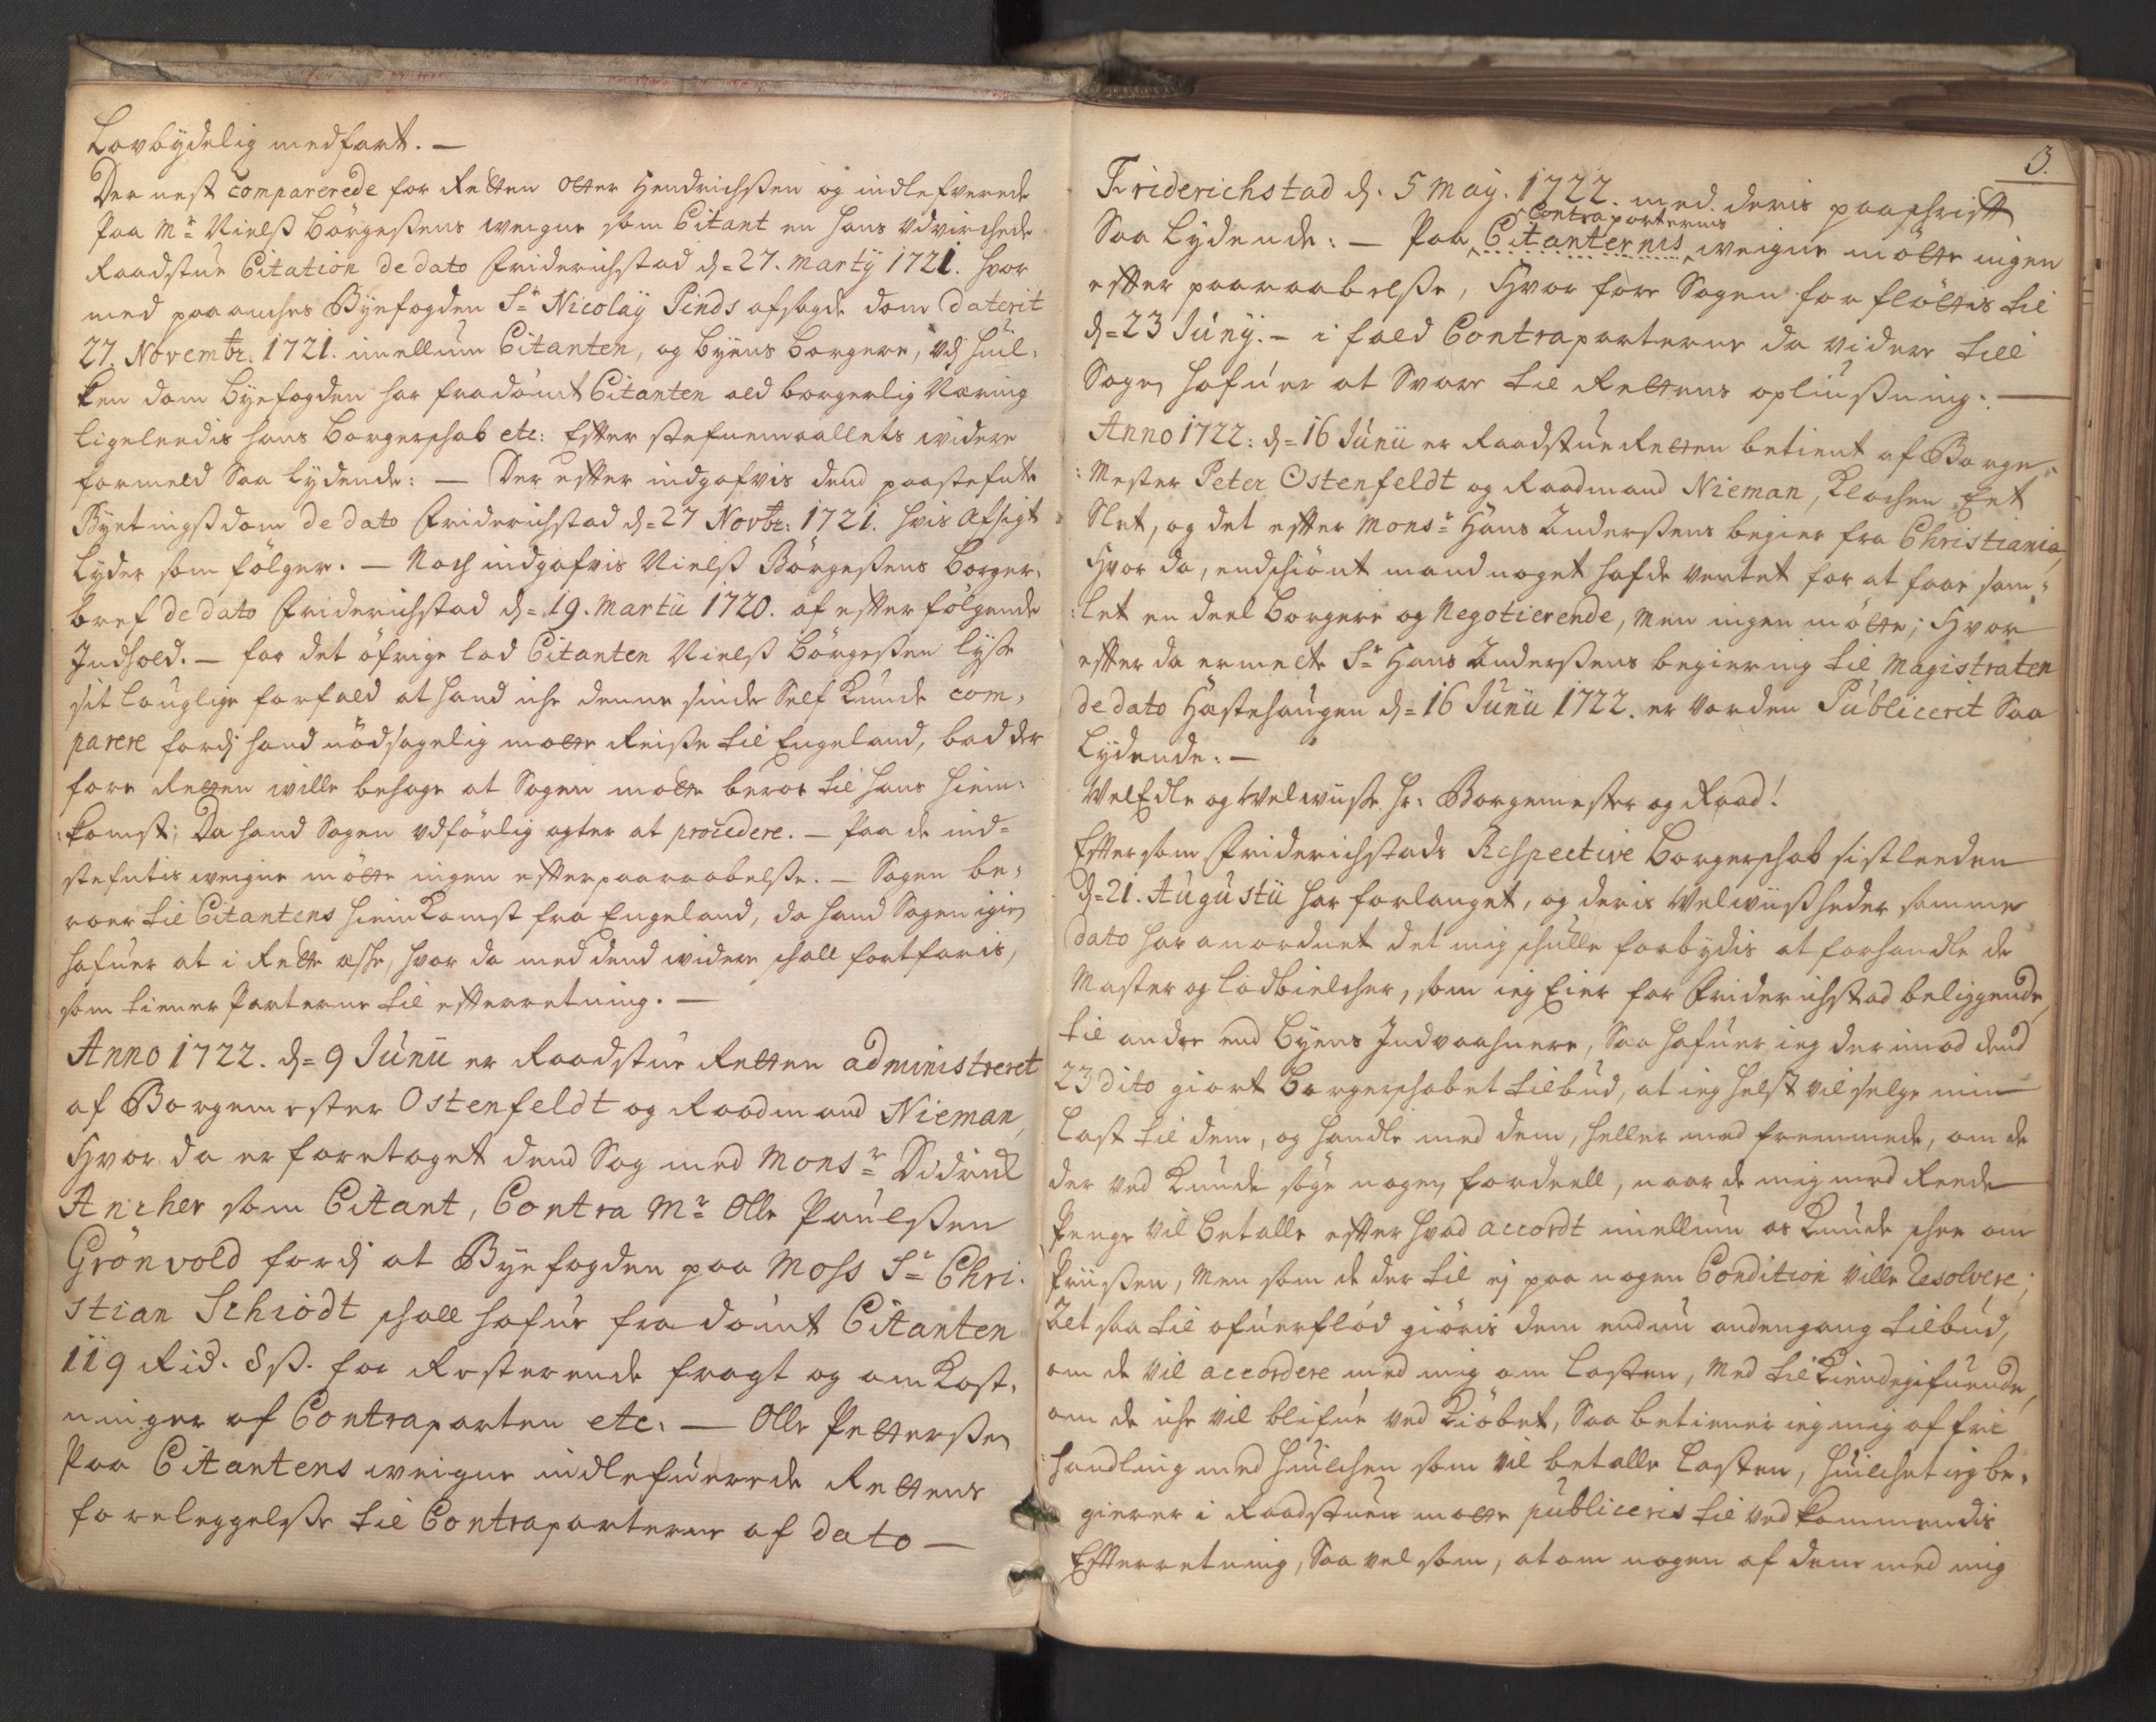 Lovbydelig medfart. —
Der nest comparerede for Retten Otter Hendrichßen og indlefverede
paa Mr Nielß Börgeßens weigne som Citant en hans udvirchede
Raadstue Citation de dato Friderichstad d= 27. Martÿ 1721. hvor
med paaanches Byefogden Sr Nicolaÿ Pinds afsagde dom daterit
27. Novembr. 1721. imellum Citanten, og byens borgere, vdj huil-
ken dom byefogden har fradömt Citanten ald borgerlig Næring
ligeleedis hans borgerschab etc: Efter stefnemaallets widere
formeld Saa lydende: — Der efter indgafvis dend paastefnte
Byetingßdom de dato Friderichstad d= 27 Novbr: 1721. hvis Afsigt
lyder som fölger. — Noch indgafvis Nielß Börgeßens borger-
bref de dato Friderichstad d= 19. Martii 1720. af efter fölgende
Indhold. — for det öfrige lod Citanten Nielß Börgeßen lyse
sit lauglige forfald at hand iche denne sinde Self Kunde com-
parere fordj hand nödsagelig motte Reiße til Engeland, bad der
fore Retten wille behage at Sagen motte beroe til hans hiem-
:komst; Da hand Sagen udförlig agter at procedere. — Paa de ind=
stefntis weigne mötte ingen efter paaraabelße. — Sagen be-
roer til Citantens hiemkomst fra Engeland, da hand Sagen igien
hafuer at i Rette æsche, hvor da med dend widere schall fortfaris,
som tiener Parterne til efterretning. —
Anno 1722. d= 9 Junii er Raadstue Retten administreret
af Borgemester Ostenfeldt og Raadmand Nieman,
Hvor da er foretaget dend Sag med Monsr Didrick
Ancher som Citant, Contra Mr Olle Paulßen
Grönvold fordj at Byefogden paa Moss Sr Chri-
stian Schiödt schall hafue fradömt Citanten
119 Rid. 8 ß. for Resterende fragt og omkost-
ninger af Contraparten etc. — Olle Petterßen
Paa Citantens weigne indlefuerede Rettens
foreleggelße til Contraparterne af dato —
3.
Friderichstad d. 5 Maÿ. 1722. med deris paaschrifft
Contraparternis
Saa Lydende: — Paa Citanternis weigne mötte ingen
efter paaraabelße, Hvor fore Sagen forflöttis til
d= 23 Junÿ. — i fald Contraparterne da videre till
Sagen hafuer at Svare til Rettens opliußning. —
Anno 1722: d= 16 Junii er Raadstue Retten betient af Borge-
:Mester Peter Ostenfeldt og Raadmand Nieman, Klochen Eet
Slet, og det efter Monsr Hans Anderßens begier fra Christiania,
Hvor da, endschiönt mand noget hafde ventet for at faae sam-
:let en deel borgere og Negotierende, Men ingen mötte; Hvor
efter da ermelte Sr Hans Anderßens begiering til Magistraten
de dato Hastehaugen d= 16 Junii 1722. er vorden Publicerit Saa
Lydende: —
WelEdle og Welwiise hr: Borgemester og Raad!
Eftersom Friderichstads Respective borgerschab sistleeden
d= 21. Augustii har forlanget, og deris Welwiißheder samme
dato har anordnet det mig schulle forbydis at forhandle de
Master og lodbielcher, som ieg Eier for Friderichstad beliggende,
til andre end Byens Indvaahnere, Saa hafuer ieg derimod dend
23 dito giort borgerschabet tilbud, at ieg helst vil selge min
Last til dem, og handle med dem, heller med fremmede, om de
der ved Kunde söge nogen fordeell, naar de mig med Reede
Penge vil betalle efter hvad accordt imellum os Kunde schee om
Priißen, Men som de der til ej paa nogen Condition ville Resolvere;
Alt saa til ofuerflöd giöris dem endnu anden gang tilbud,
om de vil accordere med mig om Lasten, Med tilkiendegifuende,
om de iche vil blifue ved Kiöbet, Saa betiener ieg mig af fri
handling med huilchen som vil betalle Lasten, huilchet ieg be-
gierer i Raadstuen motte publiceris til vedkommendis
Efterretning, Saa vel som, at om nogen af dem med mig